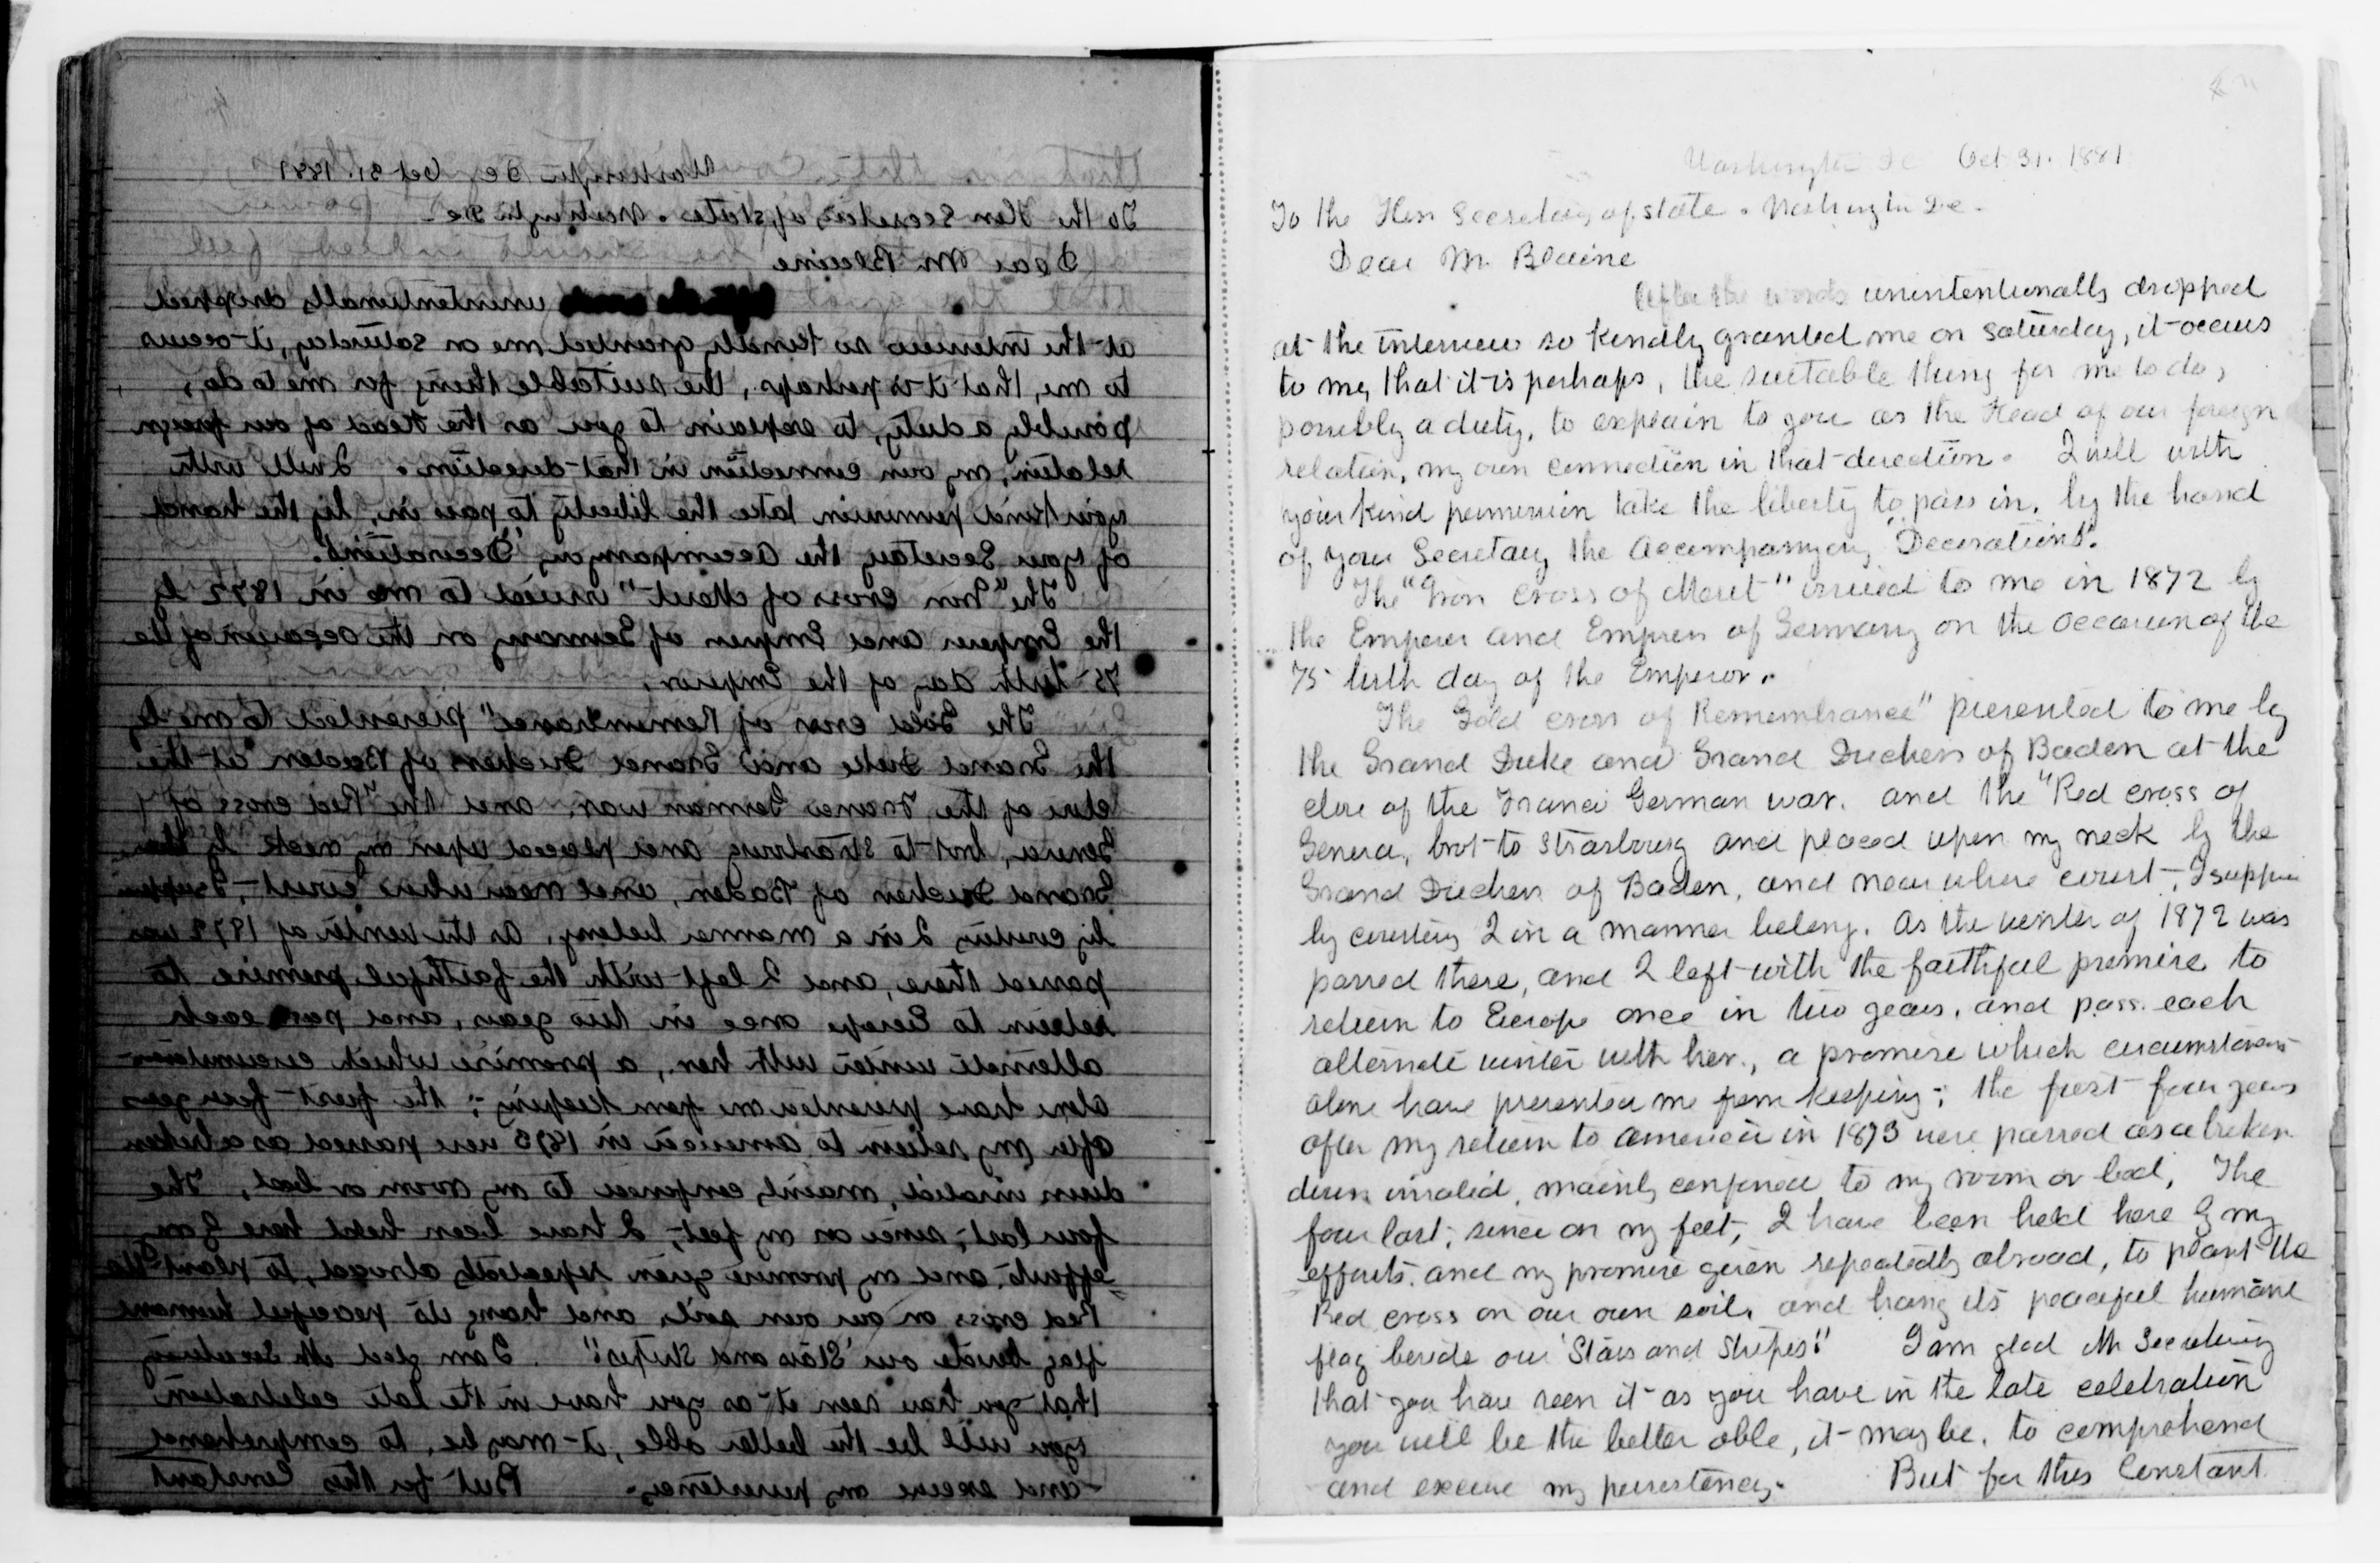 Washington De Oct 31. 1881
To the Hon Secretary of state. Washington De.
Dear Mr Blaine
After the words unintentionally dropped
at the interview so kindly granted me on saturday, it occurs
to me, that it is perhaps, the suitable thing for me to do,
possibly a duty, to explain to you as the Head of our foreign
relation, my own connection in that direction. I will with
your kind permission take the liberty to pass in, by the hand
of your Secretary the accompanying "Decorations".
The "Iron cross of Merit" issued to me in 1872 by
the Emperor and Empress of Germany on the occasion of the
75 birth day of the Emperor.
The Gold cross of Remembrance" presented to me by
the Grand Duke and Grand Duchess of Baden at the
close of the Franco German war. and the "Red cross of
Geneva, brot to Strasbourg and placed upon my neck by the
Grand Duchess of Baden, and near whose court, I suppose
by courtesy I in a manner belong. As the winter of 1872 was
passed there, and I left with the faithful promise to
return to Europe once in two years, and pass each
alternate winter with her., a promise which circumstances
alone have prevented me from keeping; the first four years
after my return to america in 1873 were passed as a broken
down invalid, mainly confined to my room or bed, The
four last, since on my feet, I have been held here by my
efforts. and my promise given repeatedly abroad, to plant the
Red cross on our own soil, and hang its peaceful humane
flag beside our 'Stars and Stripes!' I am glad Mr Secretary
that you have seen it as you have in the late celebration
you will be the better able, it may be, to comprehend
and excuse my persistency. But for this Constant